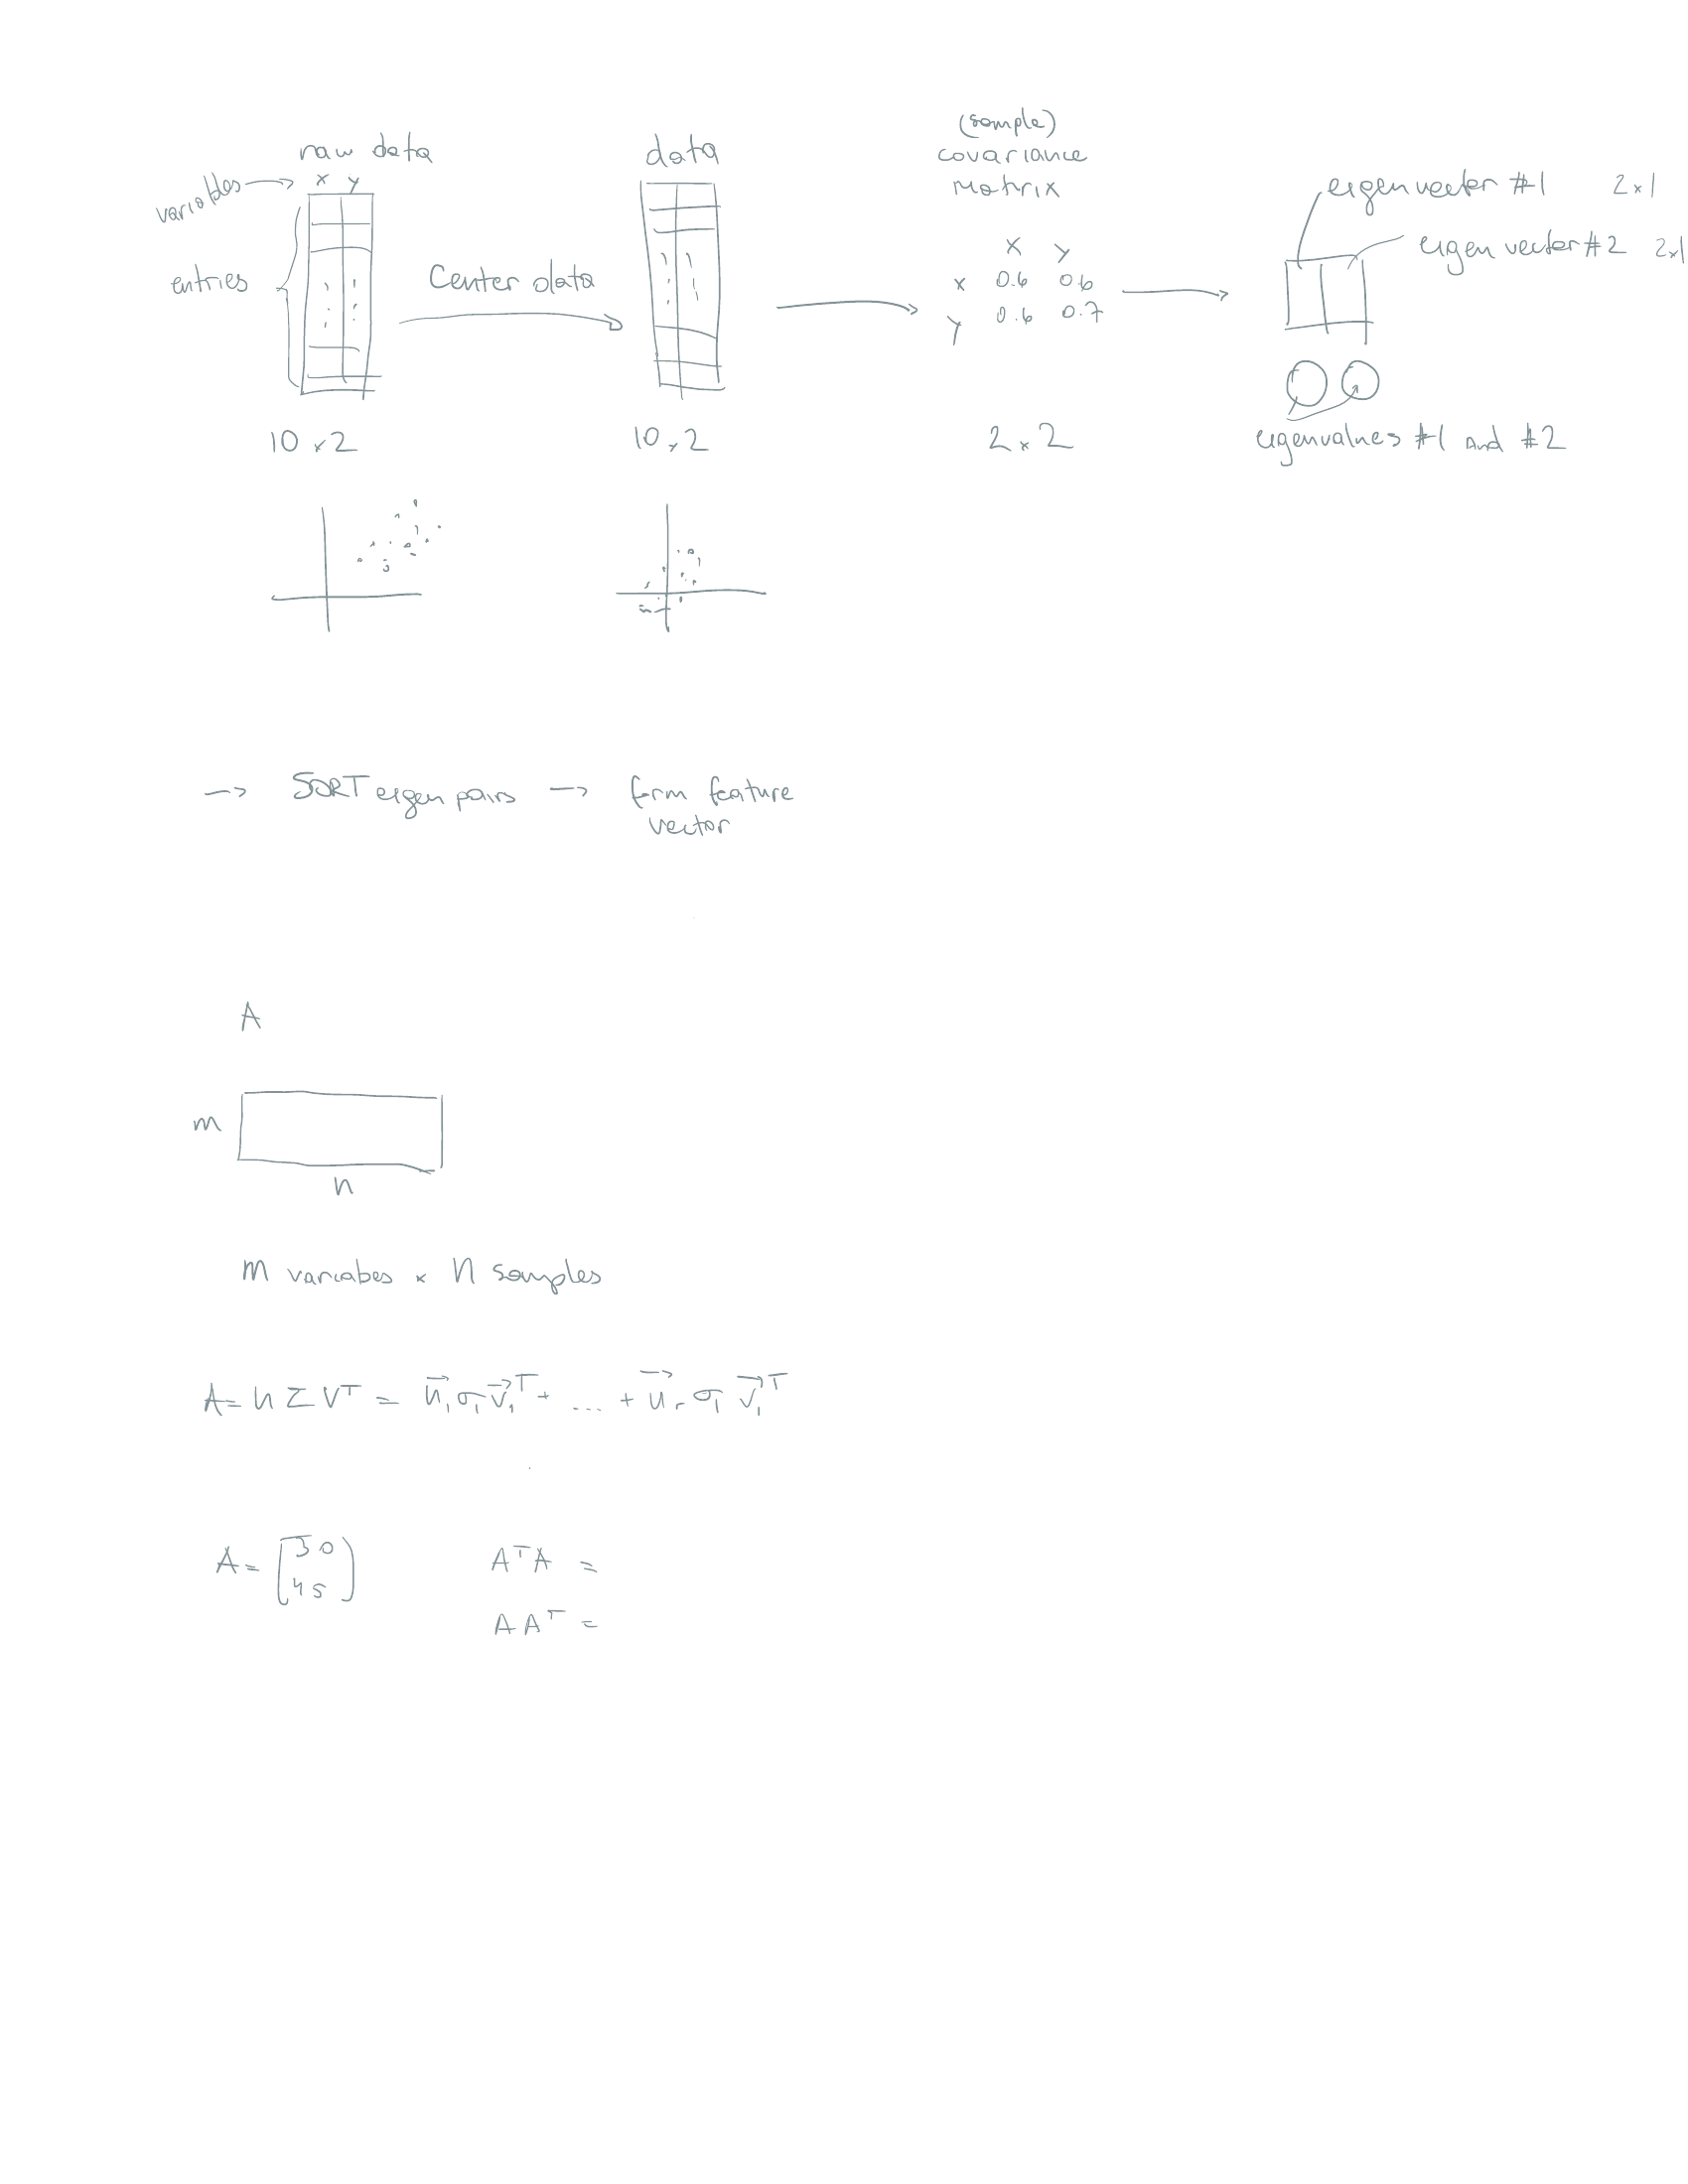 raw data
variables → x y
entries
10 x 2
Center data
data
10 x 2
(sample)
covariance
matrix
x y
x 0.6 0.6
y 0.6 0.7
2 x 2
eigenvector #1 2x1
eigen vector #2 2x1
eigenvalues #1 and #2
→ SORT eigen pairs → form feature
vector
A
m
n
m variabes x n samples
A = U Σ Vᵀ = u⃗₁ σ₁ v⃗₁ᵀ + ... + u⃗ᵣ σ₁ v⃗₁ᵀ
A = [3 0
4 5]
AᵀA =
AAᵀ =